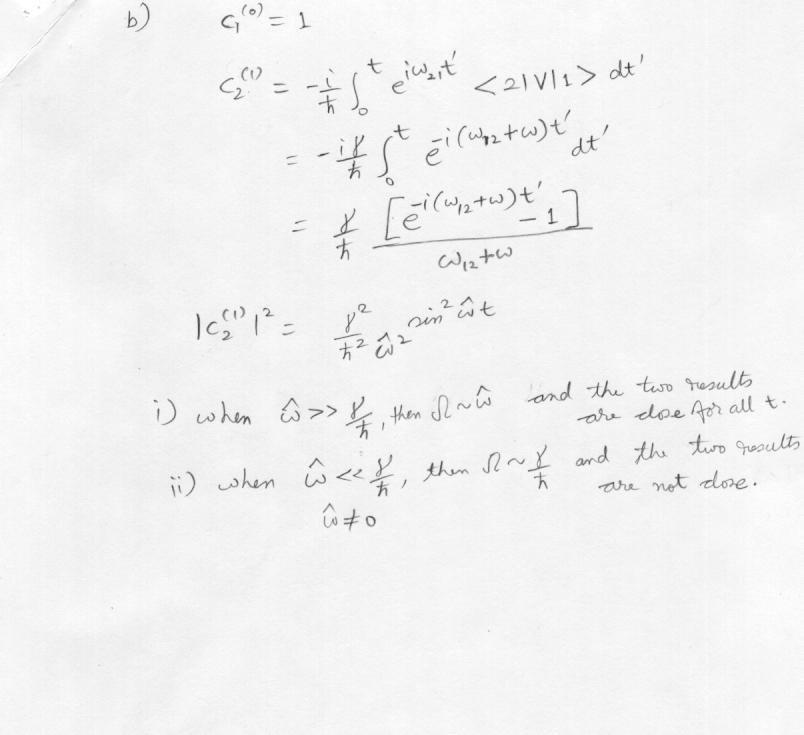 b) C₁⁽⁰⁾ = 1
C₂⁽¹⁾ = -i/ħ ∫₀ᵗ e^{iω₂₁t'} <2|V|1> dt'
= -iγ/ħ ∫₀ᵗ e^{-i(ω₁₂+ω)t'} dt'
= γ/ħ [e^{-i(ω₁₂+ω)t'} - 1] / (ω₁₂+ω)
|C₂⁽¹⁾|² = γ²/(ħ² ω̂²) sin² ω̂t
i) when ω̂ >> γ/ħ, then Ω ~ ω̂ and the two results
are close for all t.
ii) when ω̂ << γ/ħ, then Ω ~ γ/ħ and the two results
are not close.
ω̂ ≠ 0